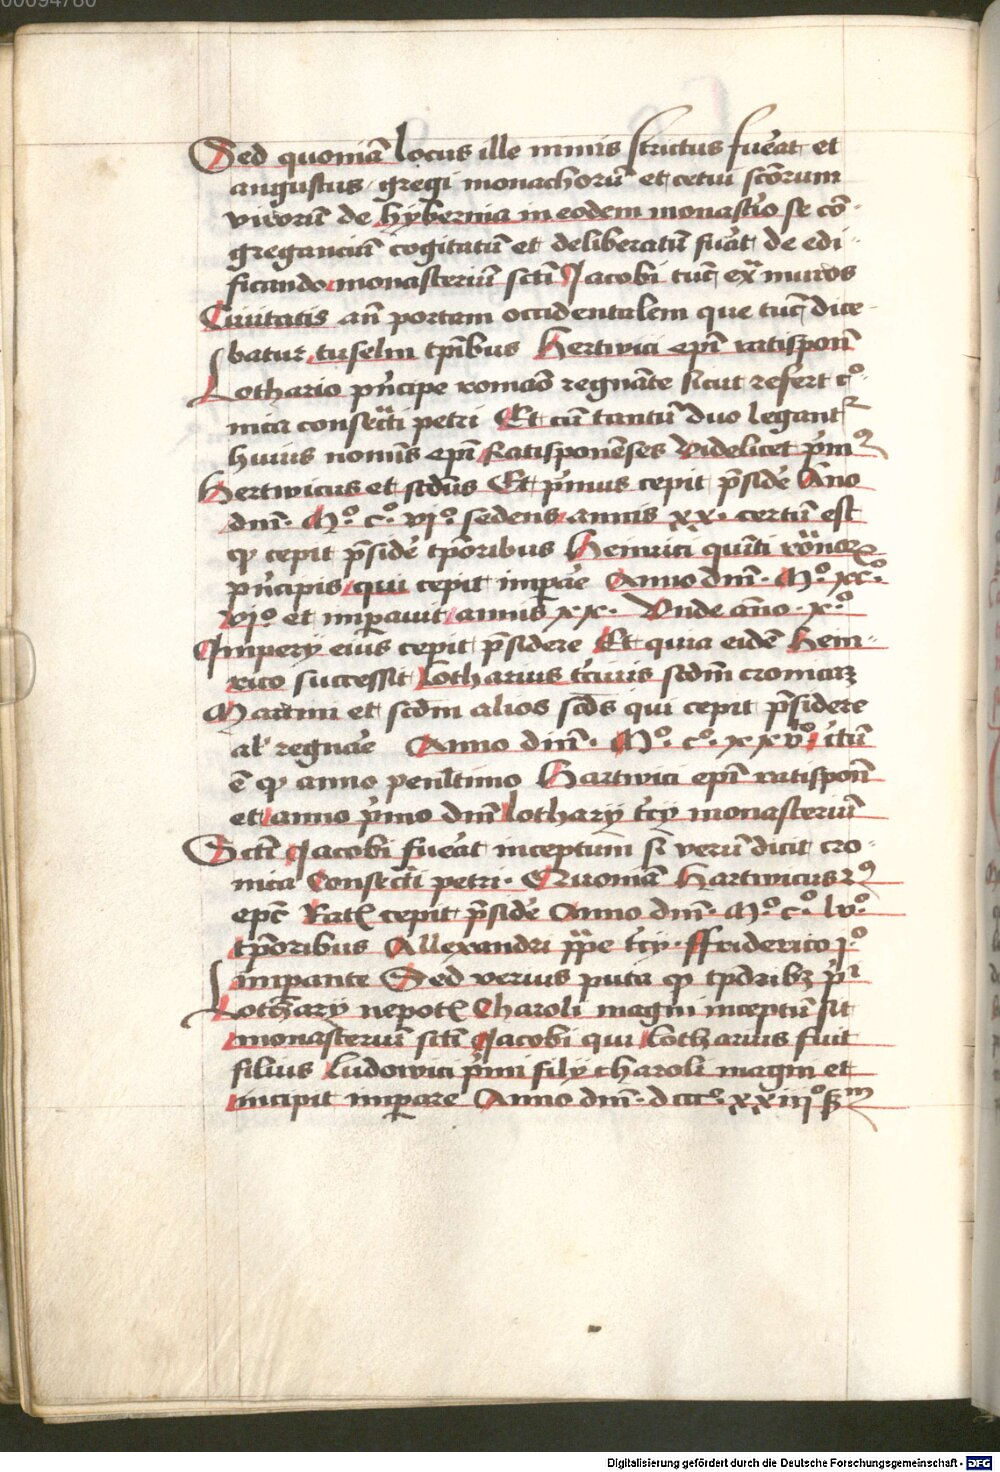 00094780
Sed quoniā locus ille nimis strictus fuerat et
angustus gregi monachorū et cetui sctōrum
virorū de hybernia in eodem monastio se cō-
greganciū cogitatū et deliberatū fuāt de edi-
ficando monasteriū scti Jacobi tūc ext̄ muros
Ciuitatis añ portam occidentalem que tūc dice-
batur tuselm tpībus Hertwici epī ratisponn̄
Lothario pn̄cipe romāo regnāte sicut refert cͦ-
nica consecrati petri Et cū tantū duo legant̄ᷣ
huius nomīs epī Ratisponēses Videlicet p̄mꝰ
Hertwicus et scdūs Et p̄mus cepit p̄sidē Āno
dnī · Mͦ · cͦ · vjͦ · sedens annis xx · certū est
ꝙ cepit p̄sidē tpōribus Heinrici quīti romanorꝫ
pn̄cipis qui cepit impāre Anno dnī · Mͦ · xcͦ ·
vjͦ et imp̄auit annis xx · Vnde āno · xͦ
Impery eius cepit p̄sidere Et quia eidē Hein-
rico successit Lotharius tcīus scdm̄ cronicaꝫ
Martini et scdm̄ alios scd̄s qui cepit p̄sidere
al' regnāe Anno dnī · Mͦ · cͦ · xxvͦ · itū
ē ꝙ anno penltimo Hartwici epī ratisponn̄
et anno p̄mo dnī lothary tcy monasteriū
Scti Jacobi fuerat inceptum si verū dicit cro-
nica Consecrāti petri · Quoniā Hartwicus 2ꝰ
epc̄ Rat cepit p̄sidē Anno dnī · Mͦ · cͦ · lvͦ ·
tpōribus Allexandri ppe tcy · ffriderico jͦ
impante Sed verius puta ꝙ tpōribꝫ p̄i
Lothary nepotꝭ Charoli magni inceptū sit
monasteriū scti Jacobi qui Lotharius fuit
filius Ludowici p̄mi fily charoli magni et
incipit imperare Anno dnī · dcccͦ · xxiijͦ s̄m
Digitalisierung gefördert durch die Deutsche Forschungsgemeinschaft - DFG